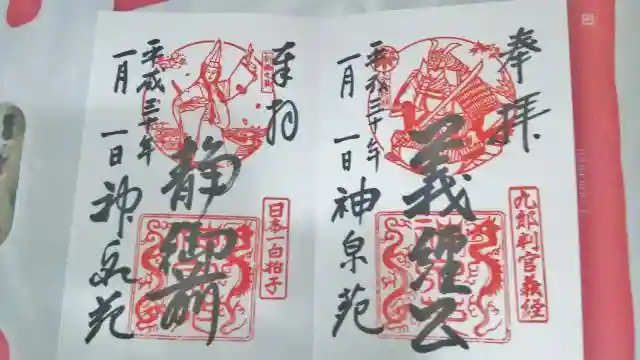 奉拝
九郎判官義経
義経公
平成三十年
一月一日
神泉苑
奉拝
日本一白拍子
静御前
平成三十年
一月一日
神泉苑